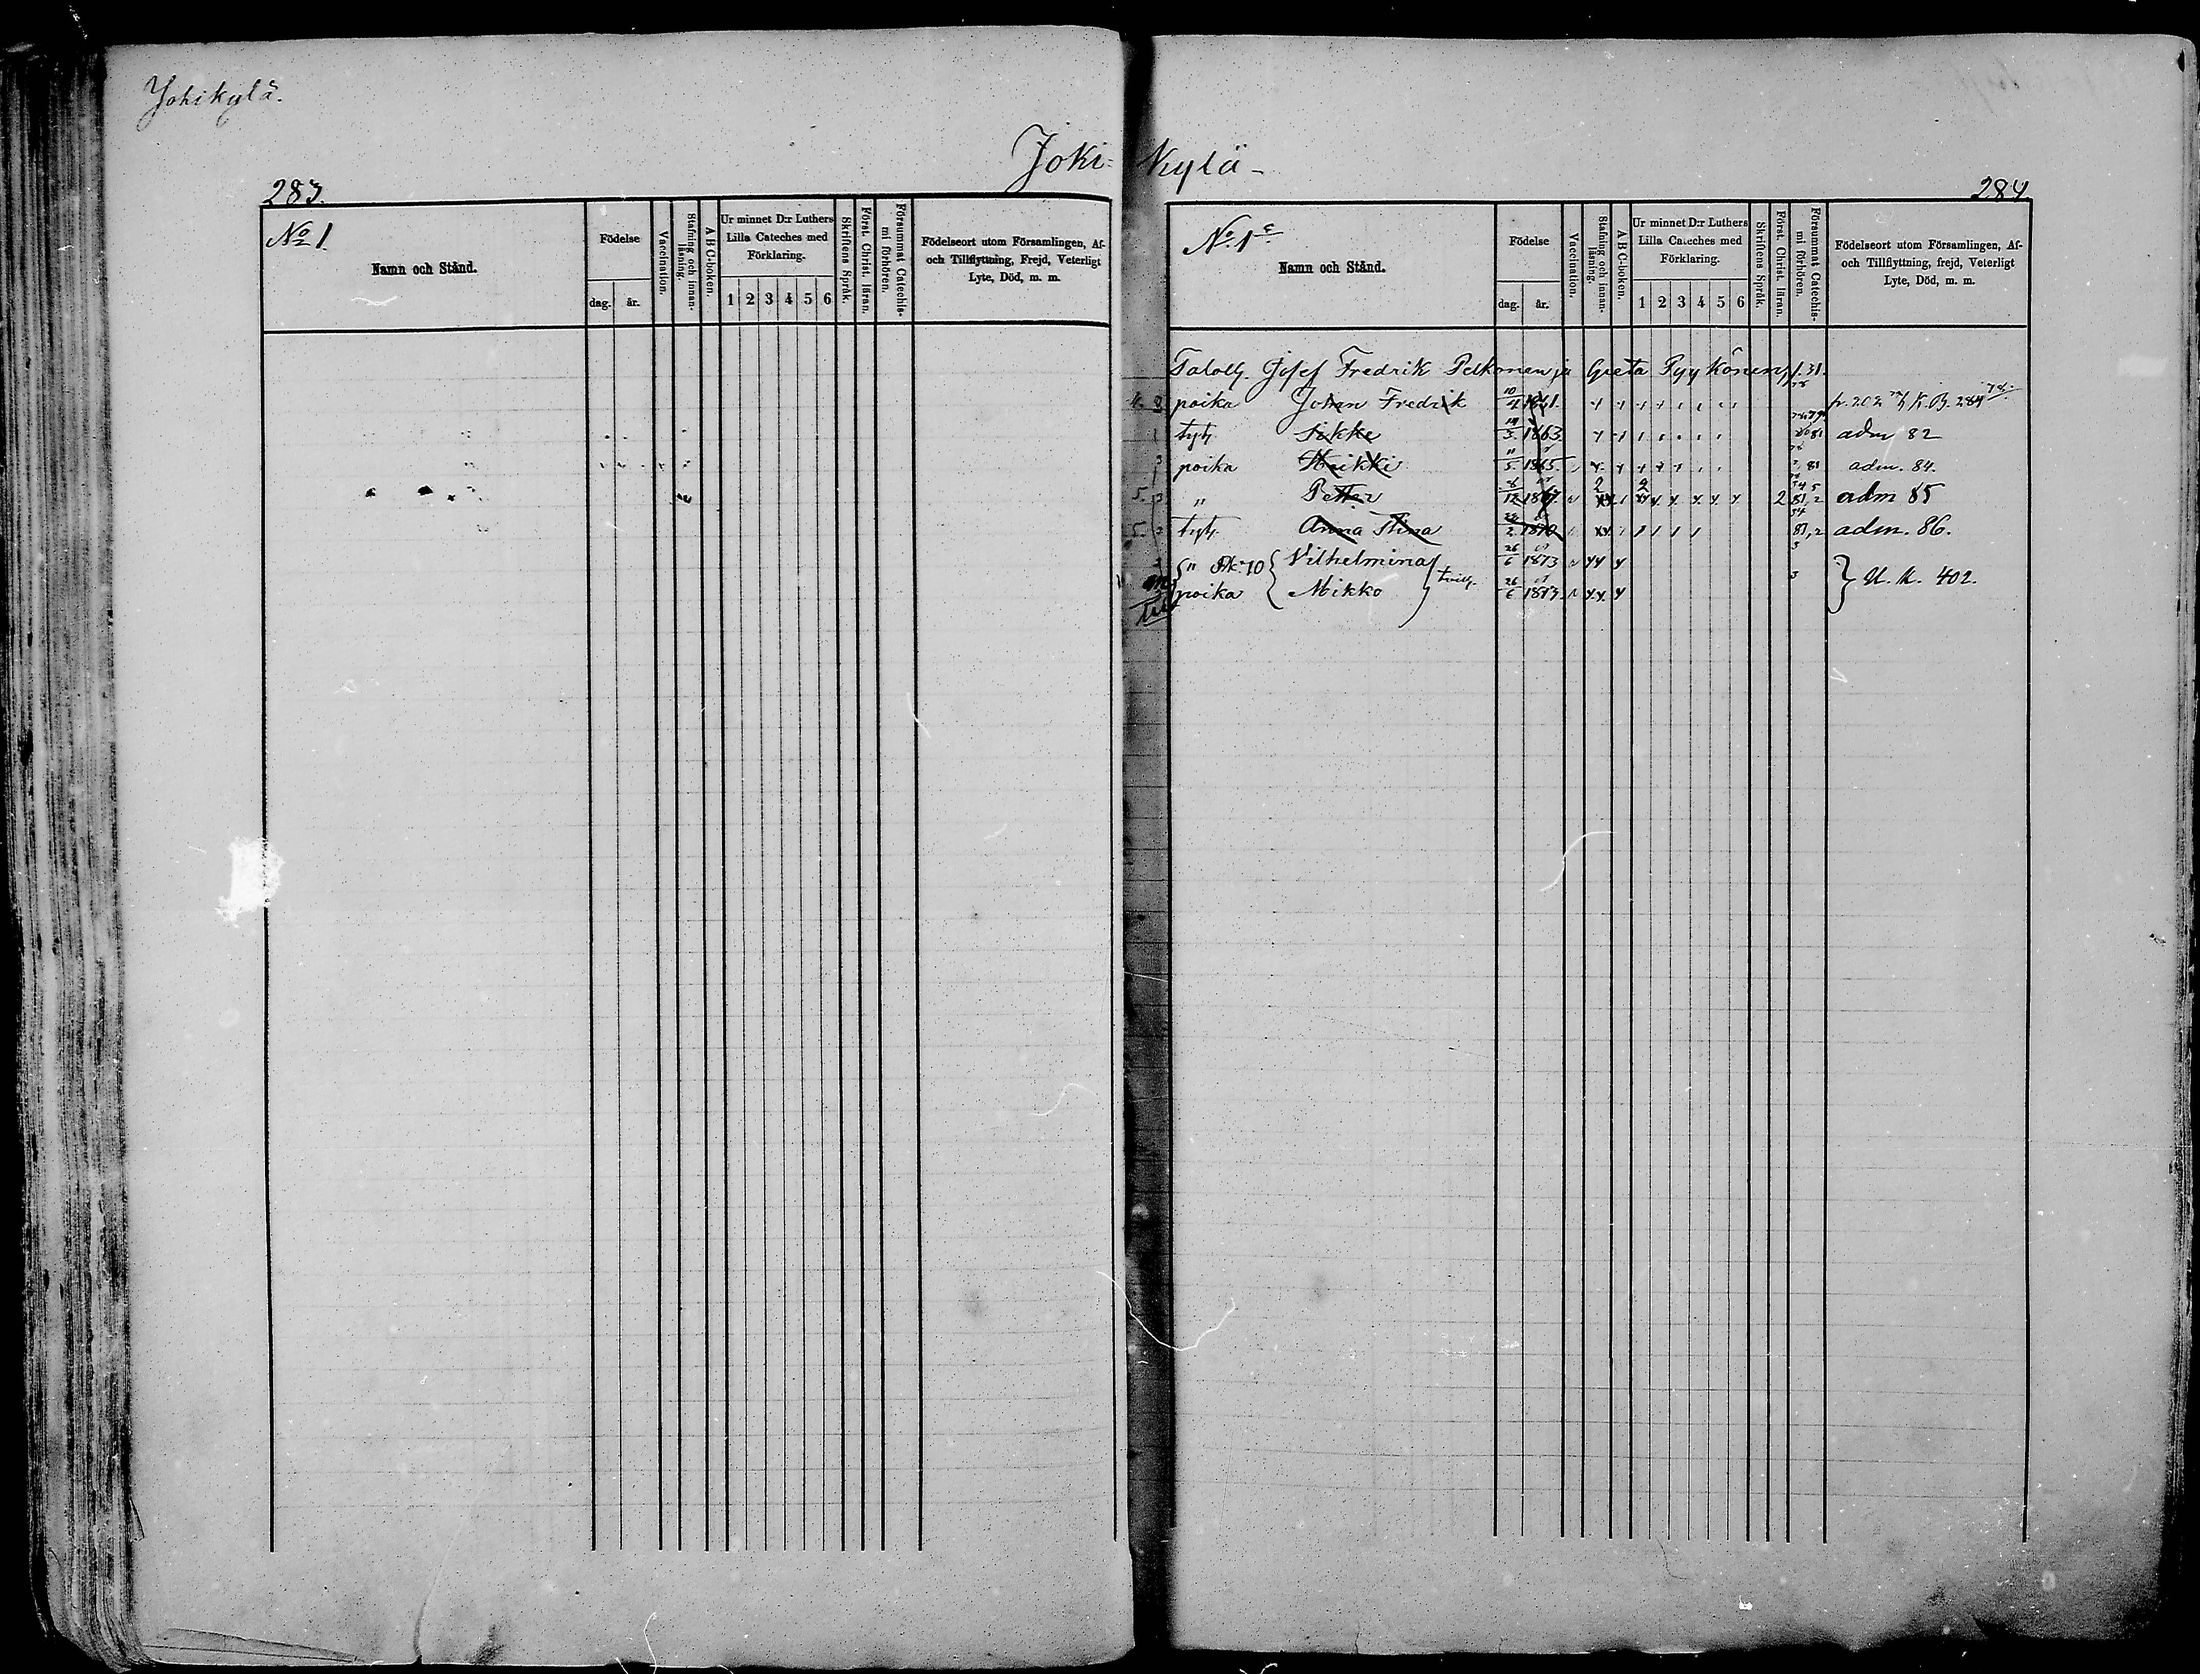 Jokikylä.
Joki- kylä-
283.
No 1
Namn och Stånd.
Födelse
dag. år.
Vaccination.
Stafning och innan-
läsning.
A B C-boken.
Ur minnet D:r Luthers
Lilla Cateches med
Förklaring.
1 2 3 4 5 6
Skriftens Språk.
Först. Christ. läran.
Försummat Catechis-
mi förhören.
Födelseort utom Församlingen, Af-
och Tillflyttning, Frejd, Veterligt
Lyte, Död, m. m.
284.
No 1
Namn och Stånd.
Födelse
dag. år.
Vaccination.
Stafning och innan-
läsning.
A B C-boken.
Ur minnet D:r Luthers
Lilla Cateches med
Förklaring.
1 2 3 4 5 6
Skriftens Språk.
Först. Christ. läran.
Försummat Catechis-
mi förhören.
Födelseort utom Församlingen, Af-
och Tillflyttning, frejd, Veterligt
Lyte, Död, m. m.
Josef Fredrik Pelkonen ja Greta Pyykönen, 31.
poika Johan Fredrik 10/4 1861. K. B. 284
tytt. 1863 81 adm 82
poika Heikki 5 1865 81 adm. 84.
" Petter 12 1867 2 81, 2 adm 85
tytt. Anna Stina 2 1870 81, 2 adm. 86.
" 10 Vilhelmina 26/6 1873
poika Mikko 26/6 1873 U. K. 402.